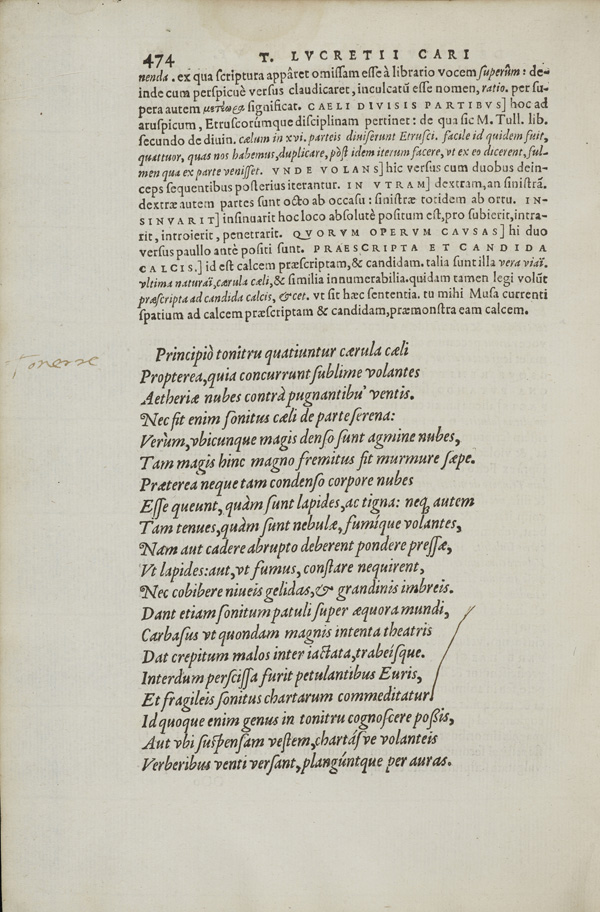 474 T. LVCRETII CARI
nenda. ex qua scriptura appâret omissam esse à librario vocem superûm: de-
inde cum perspicuè versus claudicaret, inculcatũ esse nomen, ratio. per su-
pera autem significat. CAELI DIVISIS PARTIBVS] hoc ad
aruspicum, Etruscorúmque disciplinam pertinet: de qua sic M. Tull. lib.
secundo de diuin. cælum in xvi. parteis diuiserunt Etrusci. facile id quidem fuit,
quattuor, quas nos habemus, duplicare, pòst idem iterum facere, vt ex eo dicerent, ful-
men qua ex parte venisset. VNDE VOLANS] hic versus cum duobus dein-
ceps sequentibus posterius iterantur. IN VTRAM] dextram, an sinistrã.
dextræ autem partes sunt octo ab occasu: sinistræ totidem ab ortu. IN-
SINVARIT] insinuarit hoc loco absolutè positum est, pro subierit, intra-
rit, introierit, penetrarit. QVORVM OPERVM CAVSAS] hi duo
versus paullo antè positi sunt. PRAESCRIPTA ET CANDIDA
CALCIS.] id est calcem præscriptam, & candidam. talia sunt illa vera viaï.
vltima naturaï, cærula cæli, & similia innumerabilia. quidam tamen legi volũt
præscripta ad candida calcis, &cet. vt sit hæc sententia. tu mihi Musa currenti
spatium ad calcem præscriptam & candidam, præmonstra eam calcem.
Principiò tonitru quatiuntur cærula cæli
Tonerre
Propterea, quia concurrunt sublime volantes
Aetheriæ nubes contrà pugnantibu' ventis.
Nec fit enim sonitus cæli de parte serena:
Verùm, vbicunque magis denso sunt agmine nubes,
Tam magis hinc magno fremitus fit murmure sæpe.
Præterea neque tam condenso corpore nubes
Esse queunt, quàm sunt lapides, ac tigna: neq; autem
Tam tenues, quàm sunt nebulæ, fumíque volantes,
Nam aut cadere abrupto deberent pondere pressæ,
Vt lapides: aut, vt fumus, constare nequirent,
Nec cohibere niueis gelidas, & grandinis imbreis.
Dant etiam sonitum patuli super æquora mundi,
Carbasus vt quondam magnis intenta theatris
Dat crepitum malos inter iactata, trabeisque.
Interdum perscissa furit petulantibus Euris,
Et fragileis sonitus chartarum commeditatur.
Id quoque enim genus in tonitru cognoscere possis,
Aut vbi suspensam vestem, chartásve volanteis
Verberibus venti versant, plangúntque per auras.